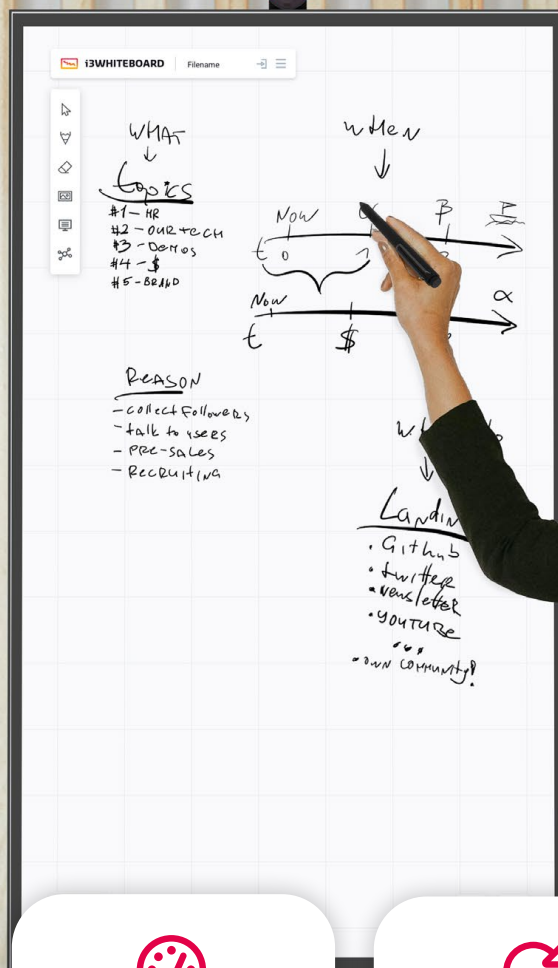 i3WHITEBOARD
Filename
WHAT
topics
#1 - HR
#2 - OUR tECH
#3 - DeMOS
#4 - $
#5 - BRAND
REASON
- collect Followers
- talk to users
- PRE-SALES
- RecRUItING
wHeN
Now
β
t
0
1
Now
α
t
$
Github
twitter
Newsletter
YOUTUBE
...
OWN COMMUNITY!